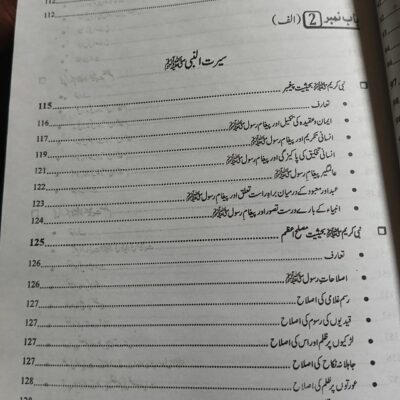 باب نمبر 2 (الف)
سیرت النبی ﷺ
نبی کریم ﷺ بحیثیت پیغمبر
تعارف 115
ایمان و عقیدہ کی تکمیل اور پیغام رسول ﷺ 116
انسانی تکریم اور پیغام رسول ﷺ 117
انسانی تخلیق کی پاکیزگی اور پیغام رسول ﷺ 119
عالمگیر پیغام رسول ﷺ 121
عبد اور معبود کے درمیان براہ راست تعلق اور پیغام رسول ﷺ 122
انبیاء کے بارے درست تصور اور پیغام رسول ﷺ 123
124
نبی کریم ﷺ بحیثیت مصلح اعظم 125
تعارف 126
اصلاحات رسول ﷺ 126
رسم غلامی کی اصلاح 127
قیدیوں کی رسوم کی اصلاح 127
لڑکیوں پر ظلم اور اس کی اصلاح 127
جاہلانہ نکاح کی اصلاح 127
عورتوں پر ظلم کی اصلاح 128
128